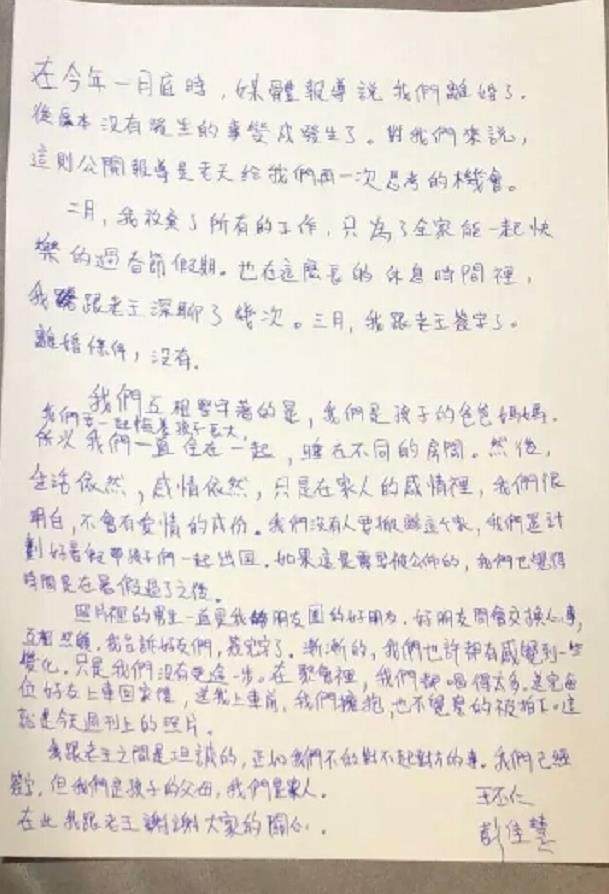 在今年一月底時，媒體報導說我們離婚了。
從原本沒有發生的事變成發生了。對我們來說，
這則公開報導是老天給我們再一次思考的機會。
二月，我放棄了所有的工作，只為了全家能一起快
樂的過春節假期。也在這麼長的休息時間裡，
我跟老王深聊了幾次。三月，我跟老王簽字了。
離婚條件，沒有。
我們互相堅守著的是，我們是孩子的爸爸媽媽。
我們要一起陪著孩子長大，
所以我們一直住在一起，睡在不同的房間。然後，
生活依然，感情依然，只是在家人的感情裡，我們很
明白，不會有愛情的成份。我們沒有人要搬離這個家，我們還計
劃好暑假帶孩子們一起出國。如果這是需要被公佈的，我們也覺得
時間是在暑假過了之後。
照片裡的男生一直是我朋友圈的好朋友，好朋友間會交換心事，
互相照顧。我告訴好友們，簽完字了。漸漸的，我們也許都有感覺到一些
變化。只是我們沒有更進一步。在聚會裡，我們都喝得太多。送完每
位好友上車回家後，送我上車前，我們擁抱，也不覺麼的被拍了。這
就是今天週刊上的照片。
我跟老王之間是坦誠的，正如我們不做對不起對方的事。我們已經
簽字，但我們是孩子的父母，我們是家人。
在此我跟老王謝謝大家的關心。
王丕仁
彭佳慧